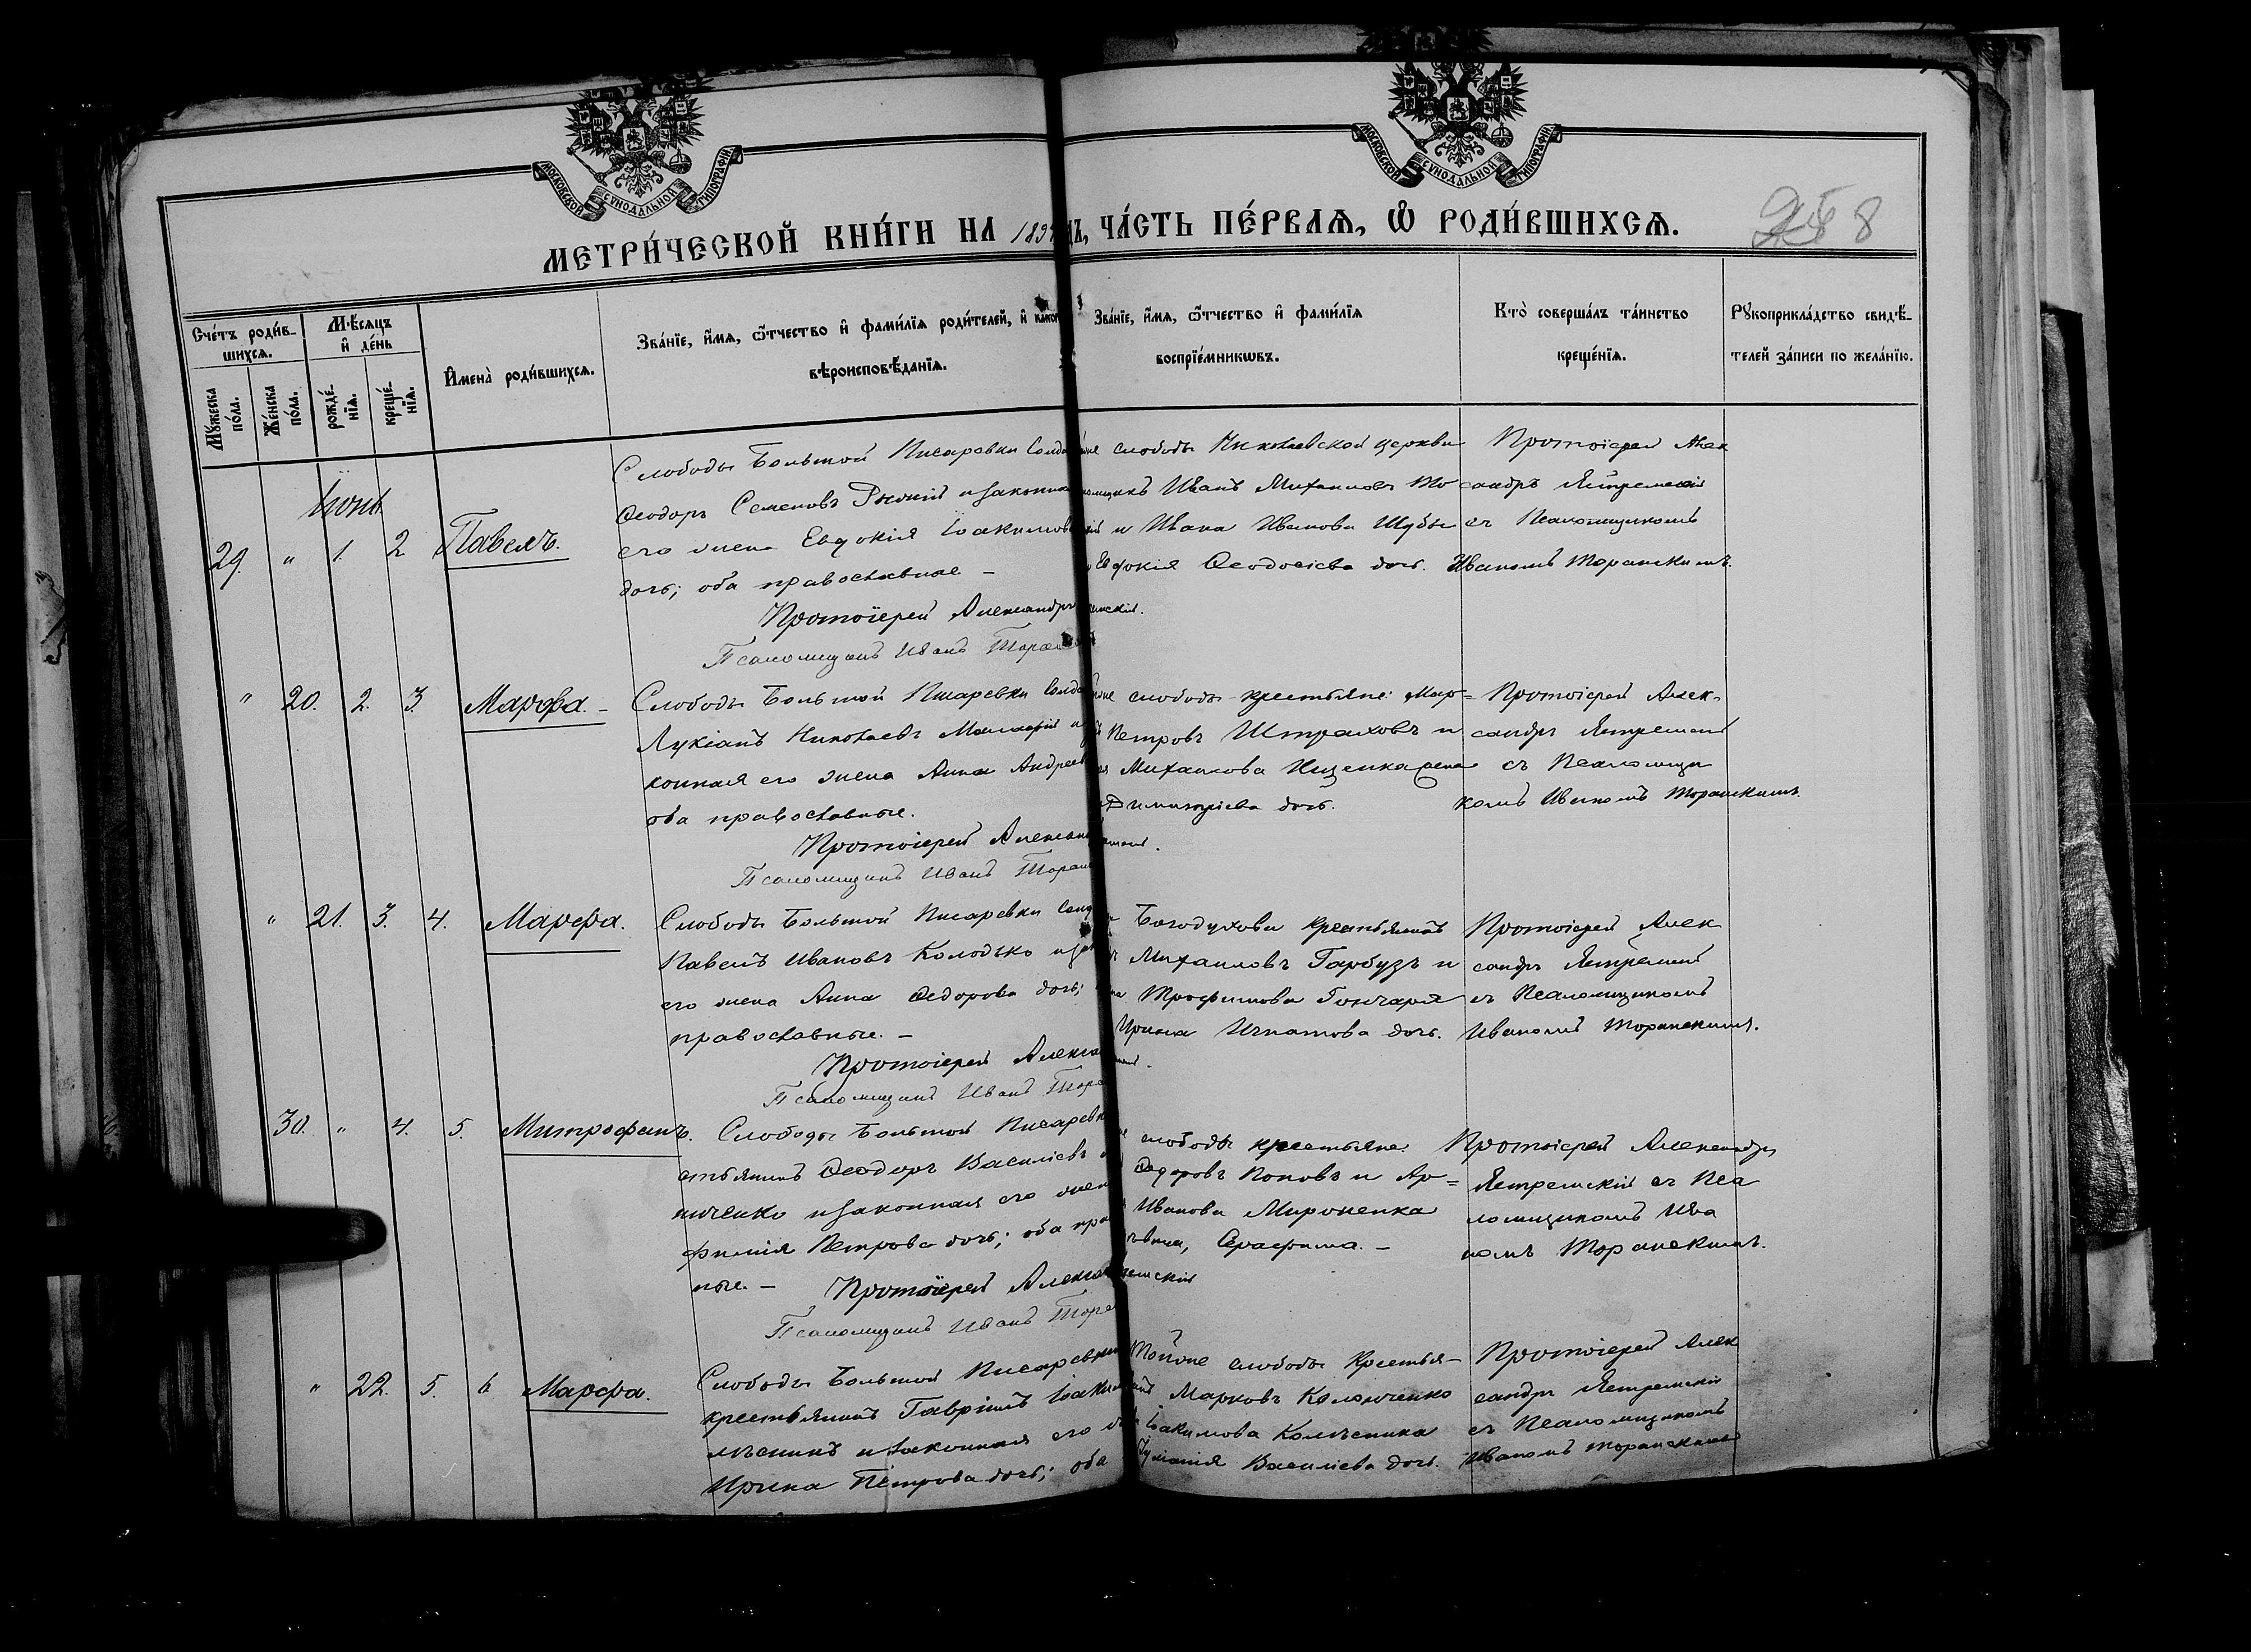 МОСКОВСКОЙ СУНОДАЛЬНОЙ ТИПОГРАФІИ
МОСКОВСКОЙ СУНОДАЛЬНОЙ ТИПОГРАФІИ
МЕТРИ́ЧЕСКОЙ КНИ́ГИ НА 189 ДЪ, ЧА́СТЬ ПЕ́РВАѦ, Ѡ РОДИ́ВШИХСѦ.
8
Сче́тъ роди́в-
шихсѧ.
Мꙋжеска по́ла.
Же́нска по́ла.
Мѣ́сѧцъ и де́нь
рожде́-нїѧ.
креще́-нїѧ.
И҆мена̀ роди́вшихсѧ.
Зва́нїе, и҆́мѧ, ѻ҆́тчество и҆ фами́лїѧ роди́телей, и҆ како
вѣроисповѣ́данїѧ.
Зва́нїе, и҆́мѧ, ѻ҆́тчество и҆ фами́лїѧ
воспрїе́мникѡвъ.
Кто̀ соверша́лъ та́инство
креще́нїѧ.
Рꙋкоприкла́дство свидѣ́-
телей за́писи по жела́нїю.
Іюнь
29. " 1. 2 Павелъ.
Слободы Большой Писаревки Солда
Ѳеодоръ Семеновъ и законна
его жена Евдокія Іоакимов
дочь; оба православные –
Протоіерей Александръ
Псаломщикъ Иванъ Торан
слободы Николаевской церкви
Иванъ Михаиловъ То
и Ивана Иванова Шубы
Евдокія Ѳеодосіева дочь.
Протоіерей Алек
сандръ Ястремскій
съ Псаломщикомъ
Иваномъ Торанскимъ.
" 20. 2. 3. Марѳа. –
Слободы Большой Писаревки Солда
Лукіанъ Николаевъ
конная его жена Анна Андреев
оба православные.
Протоіерей Алексан
Псаломщикъ Иванъ Торан
слободы крестьяне: Мар=
Петровъ Штраховъ и
Михаилова Ищенка жена
Димитріева дочь.
Протоіерей Алек-
сандръ Ястремскій
съ Псаломщи
комъ Иваномъ Торанскимъ.
" 21. 3. 4. Марѳа.
Слободы Большой Писаревки Солд
Павелъ Ивановъ Колодько и зак
его жена Анна Ѳедорова дочь;
православные. –
Протоіерей Алекса
Псаломщикъ Иванъ Торан
Богодухова крестьянинъ
Михаиловъ Гарбузъ и
Трофимова Гончаря
Ирина Игнатова дочь.
Протоіерей Алек
сандръ Ястремскій
съ Псаломщикомъ
Иваномъ Торанскимъ.
30. " 4. 5. Митрофанъ.
Слободы Большой Писаревк
стьянинъ Ѳеодоръ Василіевъ
ниченко и законная его жен
фимія Петрова дочь; оба пра
ные. – Протоіерей Алекса
Псаломщикъ Иванъ Торан
слободы крестьяне:
Ѳедоровъ Поповъ и Ар=
Иванова Мироненка
Серафима. –
Протоіерей Александръ
Ястремскій съ Пса
ломщикомъ Ива
номъ Торанскимъ.
" 22. 5. 6. Марѳа.
Слободы Большой Писаревки
крестьянинъ Гавріилъ Іоаки
лѣсникъ и законная его
Ирина Петрова дочь; оба
Тойже слободы Крестья-
Марковъ Коломченко
Іоакимова Колѣсника
Василіева дочь.
Протоіерей Алек
сандръ Ястремскій
съ Псаломщикомъ
Иваномъ Торанскимъ